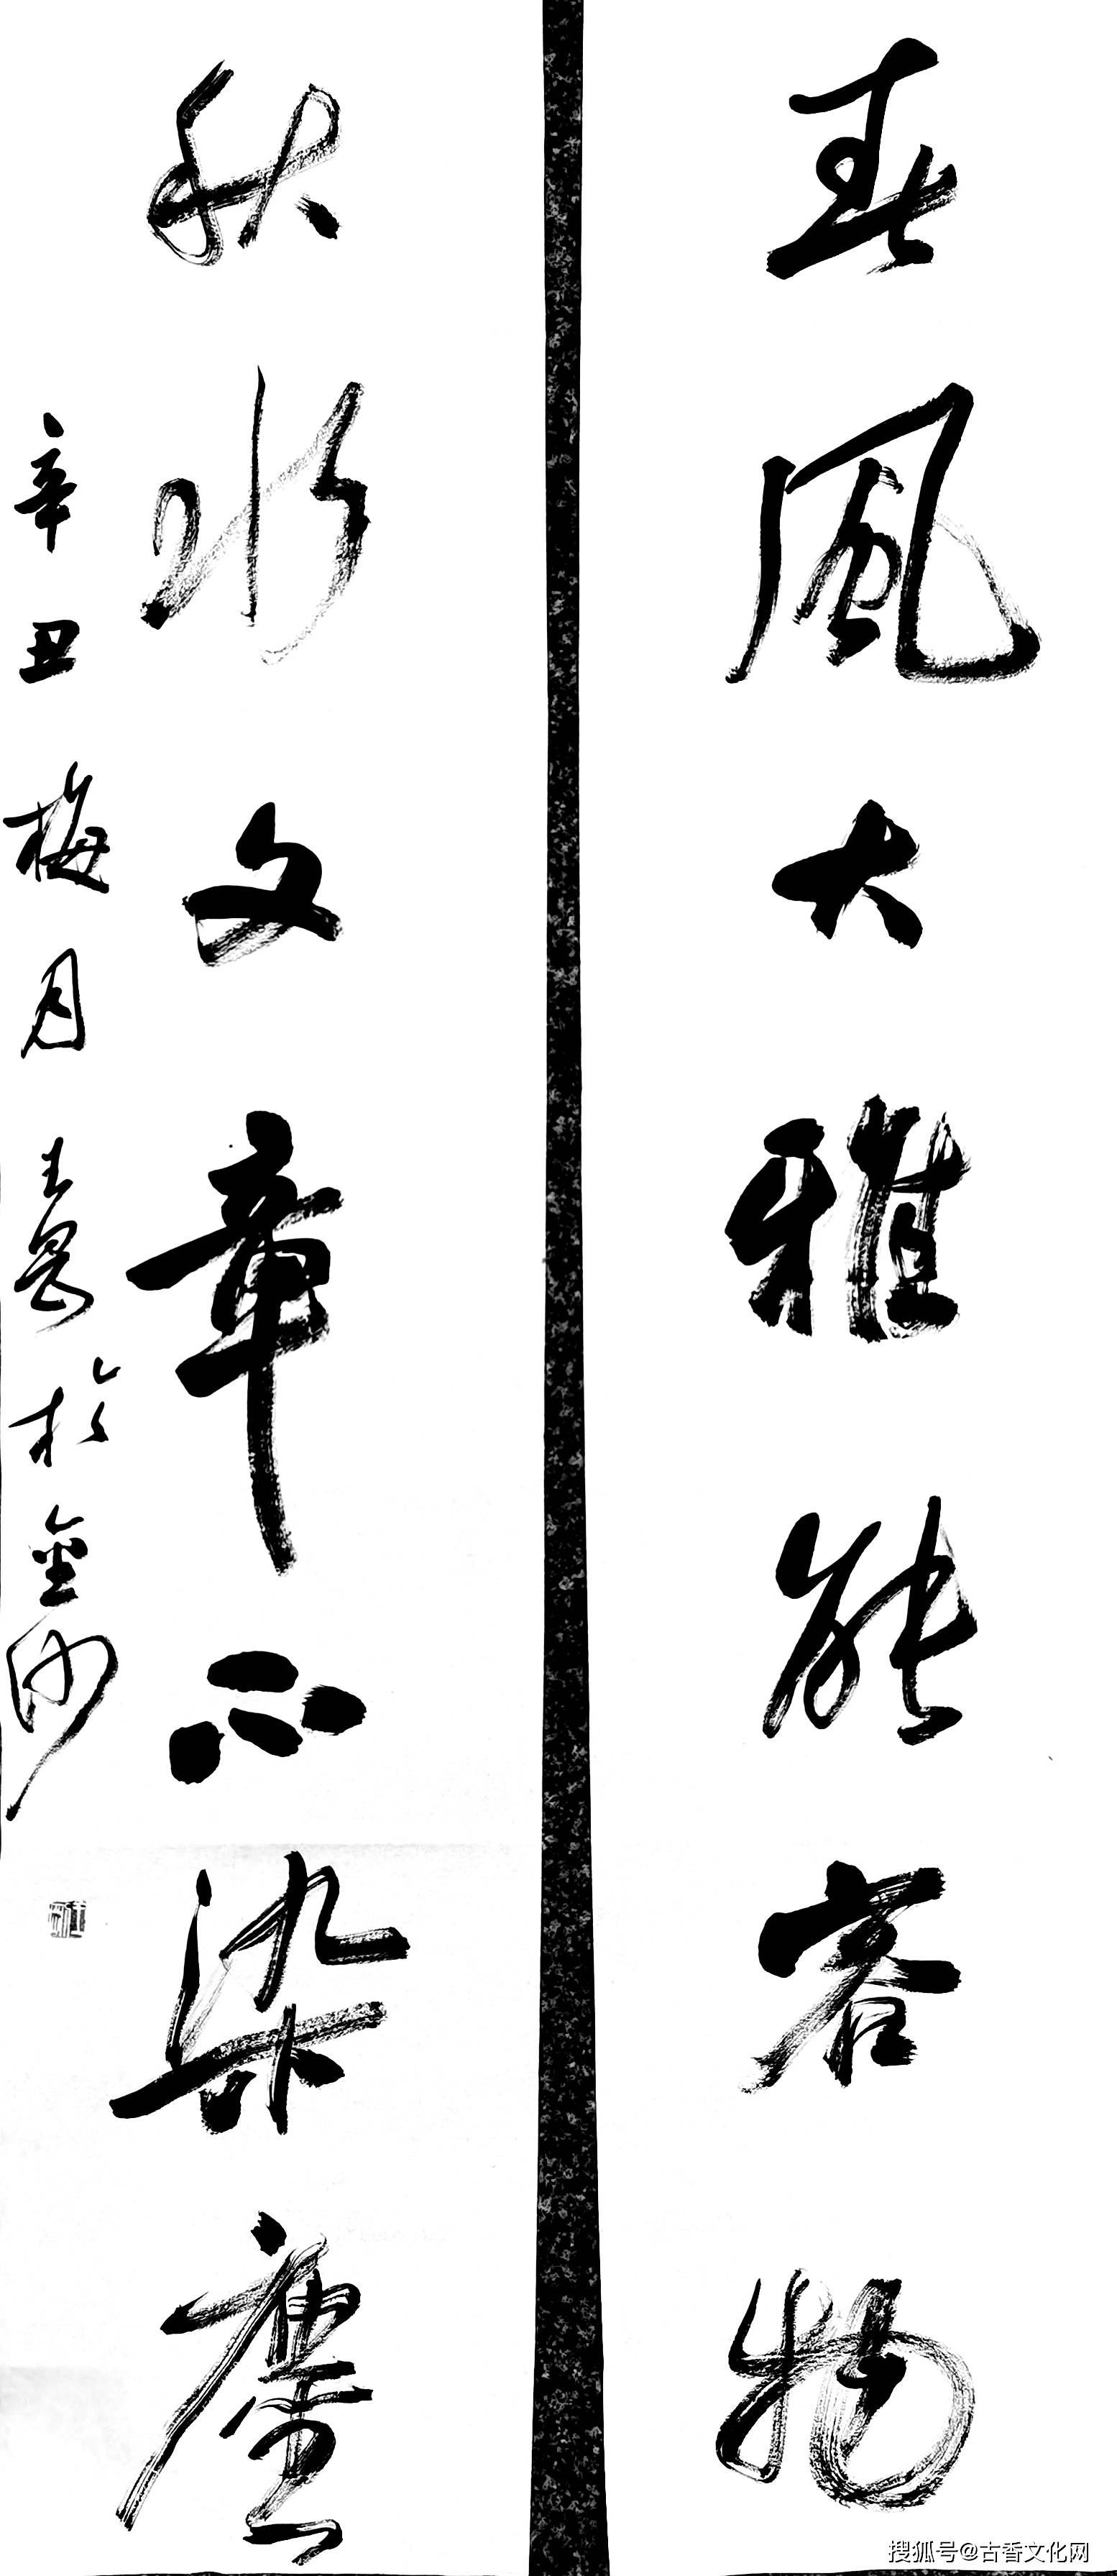 春風大雅能容物
秋水文章不染塵
辛丑梅月王勇於金沙
搜狐号@古香文化网